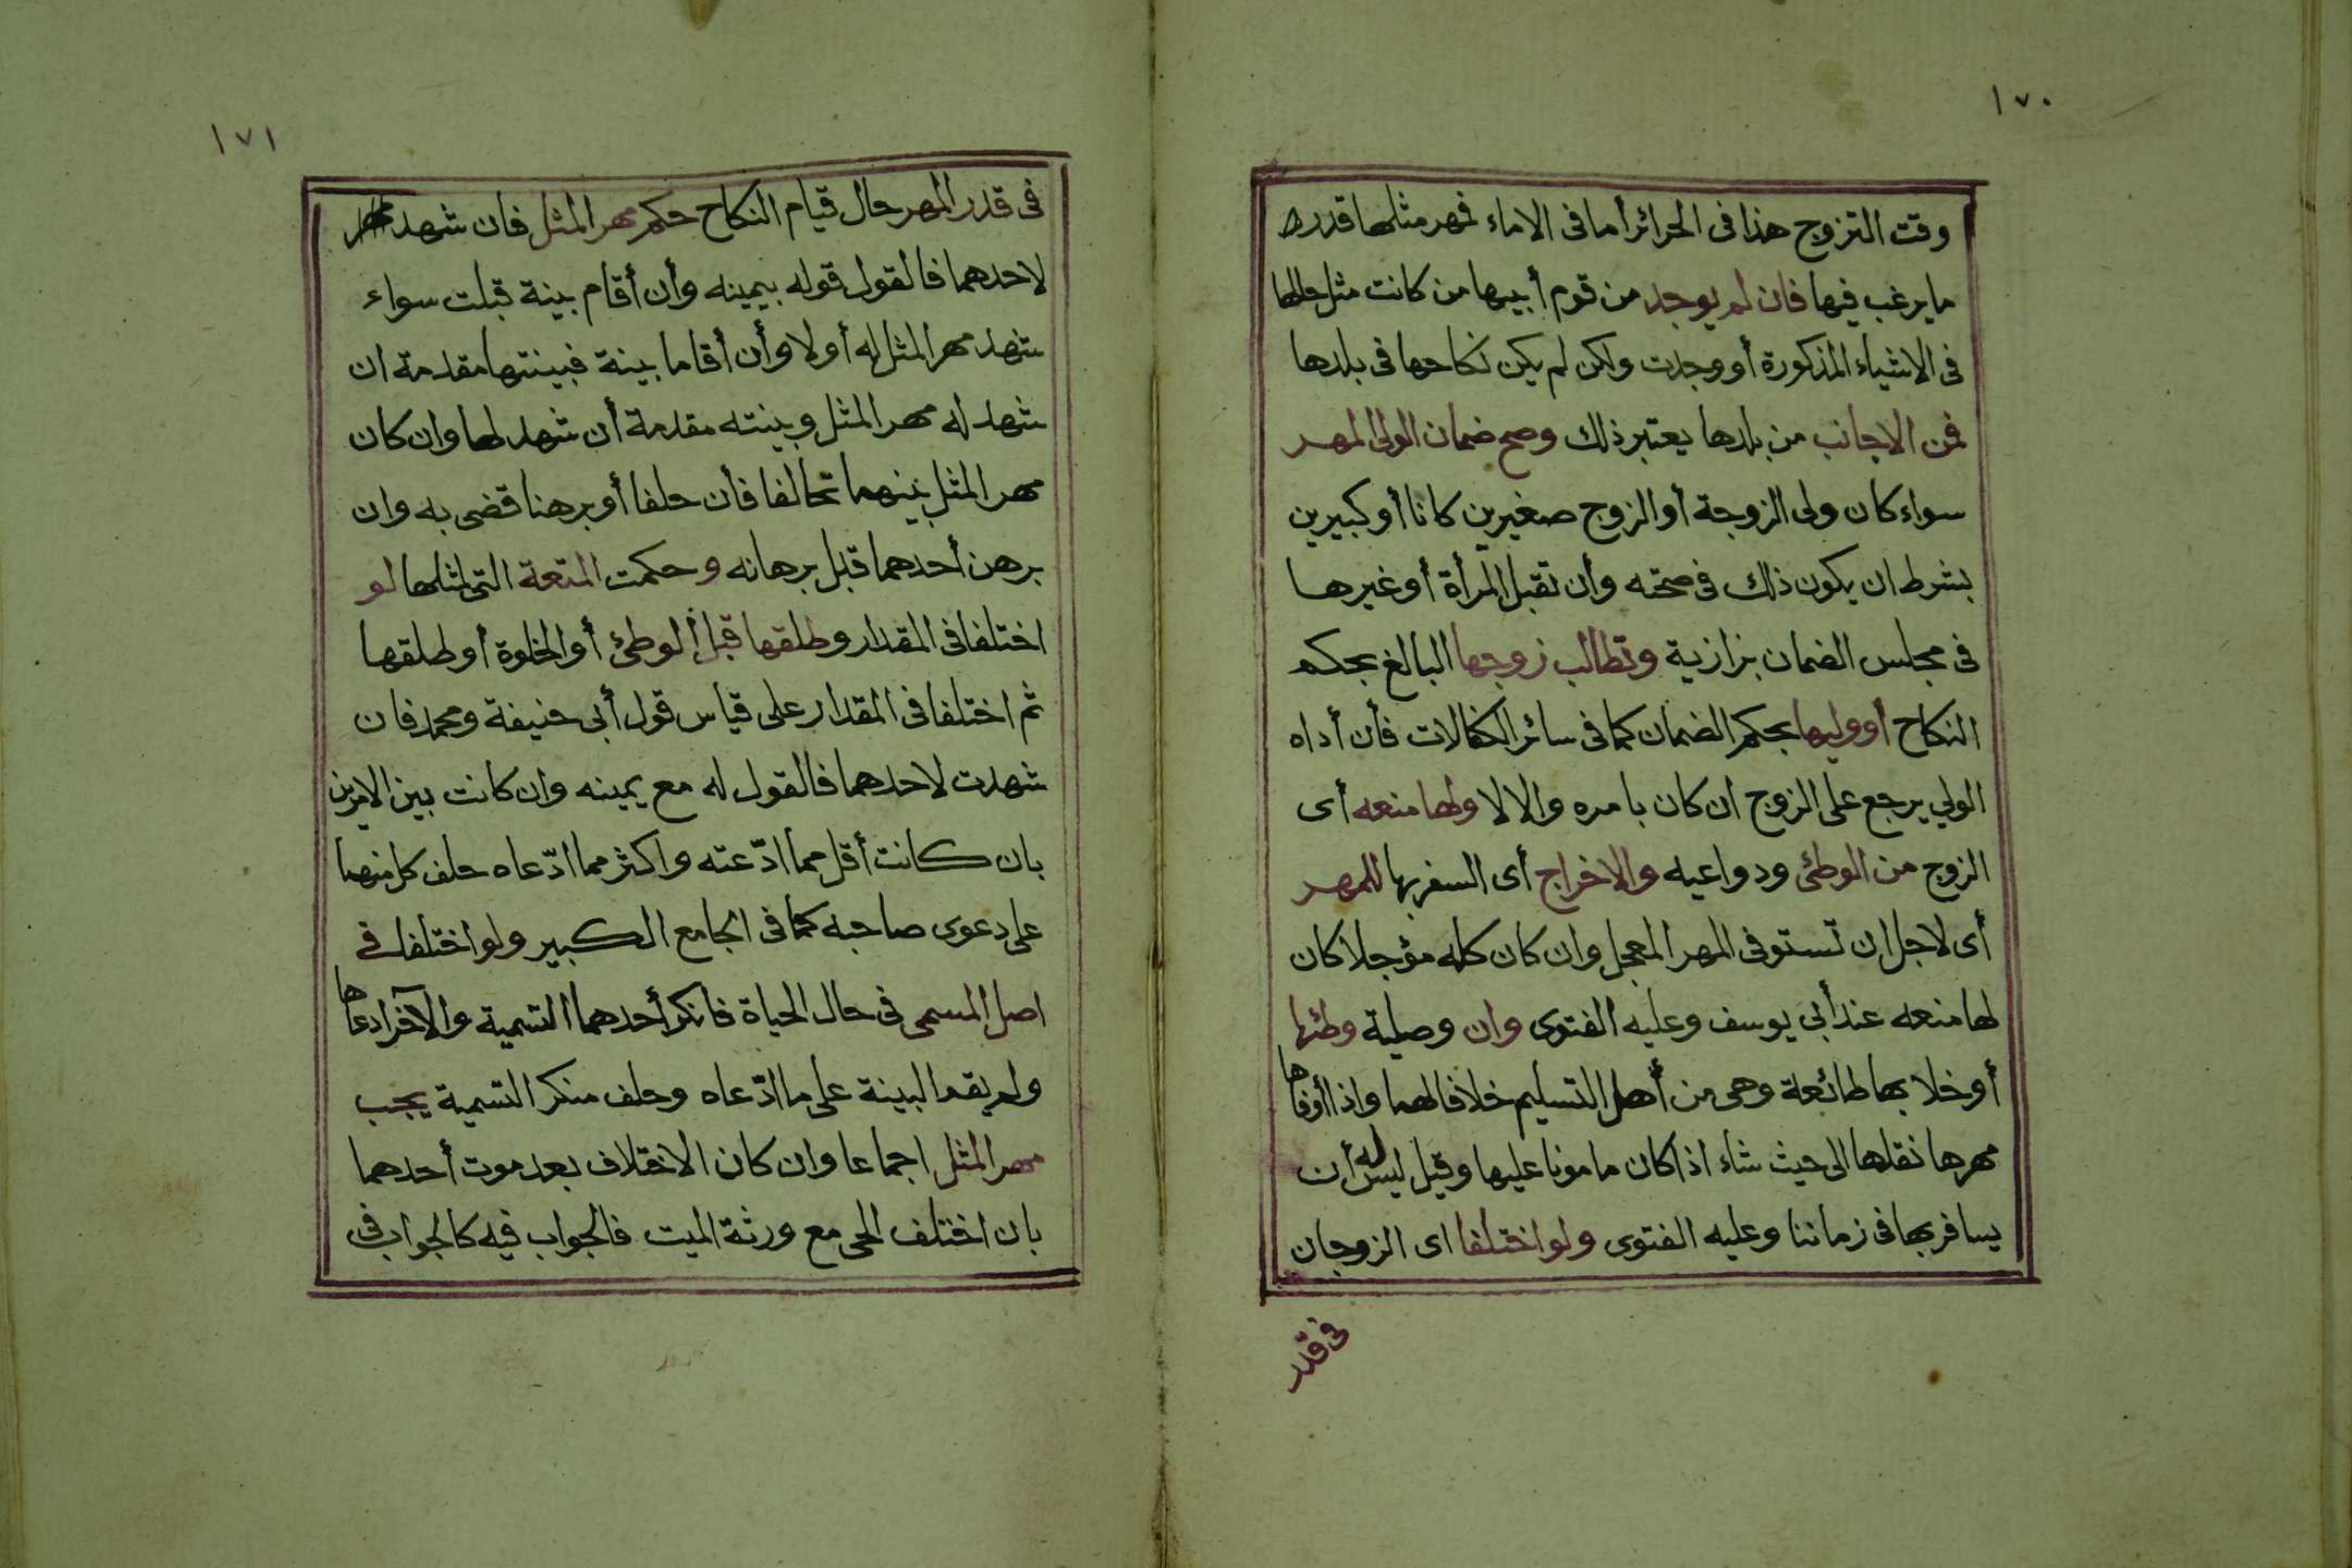 ١٧٠
وقت التزوج هذا فى الحرائر أما فى الاماء فمهر مثلها قدر
ما يرغب فيها فان لم يوجد من قوم أبيها من كانت مثل حالها
فى الاشياء المذكورة أو وجدت ولكن لم يكن نكاحها فى بلدها
فمن الاجانب من بلدها يعتبر ذلك وصح ضمان الولى المهر
سواء كان ولى الزوجة أو الزوج صغيرين كانا أو كبيرين
بشرط ان يكون ذلك فى صحته وأن تقبل المرأة أو غيرها
فى مجلس الضمان بزازية وتطالب زوجها البالغ بحكم
النكاح أو وليها بحكم الضمان كما فى سائر الكفالات فأن أداه
الولي يرجع على الزوج ان كان بامره والا لا ولها منعه أى
الزوج من الوطئ ودواعيه والاخراج أى السفر بها للمهر
أى لاجل ان تستوفى المهر المعجل وان كان كله مؤجلا كان
لها منعه عند أبي يوسف وعليه الفتوى وان وصلية وطئها
أو خلا بها طائعة وهى من أهل التسليم خلافا لهما واذا أوفاها
مهرها نقلها الى حيث شاء اذا كان مامونا عليها وقيل ليس له أن
يسافر بها فى زماننا وعليه الفتوى ولو اختلفا اى الزوجان
فى قدر
١٧١
فى قدر المهر حال قيام النكاح حكم مهر المثل فان شهد
لاحدهما فالقول قوله بيمينه وأن أقام بينة قبلت سواء
شهد مهر المثل له أو لا وأن أقاما بينة فبينتها مقدمة ان
شهد له مهر المثل وبينته مقدمة أن شهد لها وان كان
مهر المثل بينهما تحالفا فأن حلفا أو برهنا قضى به وان
برهن أحدهما قبل برهانه وحكمت المتعة التى لمثلها لو
اختلفا فى المقدار وطلقها قبل الوطئ أو الخلوة أو طلقها
ثم اختلفا فى المقدار على قياس قول أبى حنيفة ومحمد فان
شهدت لاحدهما فالقول له مع يمينه وان كانت بين الامرين
بان كانت أقل مما ادّعته واكثر مما ادّعاه حلف كل منهما
على دعوى صاحبه كما فى الجامع الكبير ولو اختلفا فى
اصل المسمى فى حال الحياة فانكر أحدهما التسمية والآخر ادعاها
ولم يقم البينة على ما ادّعاه وحلف منكر التسمية يجب
مهر المثل اجماعا وان كان الاختلاف بعد موت أحدهما
بان اختلف الحى مع ورثة الميت فالجواب فيه كالجواب فى